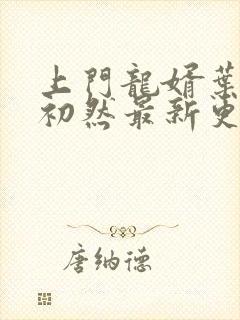 上門龍婿葉
初然最新更
唐納德